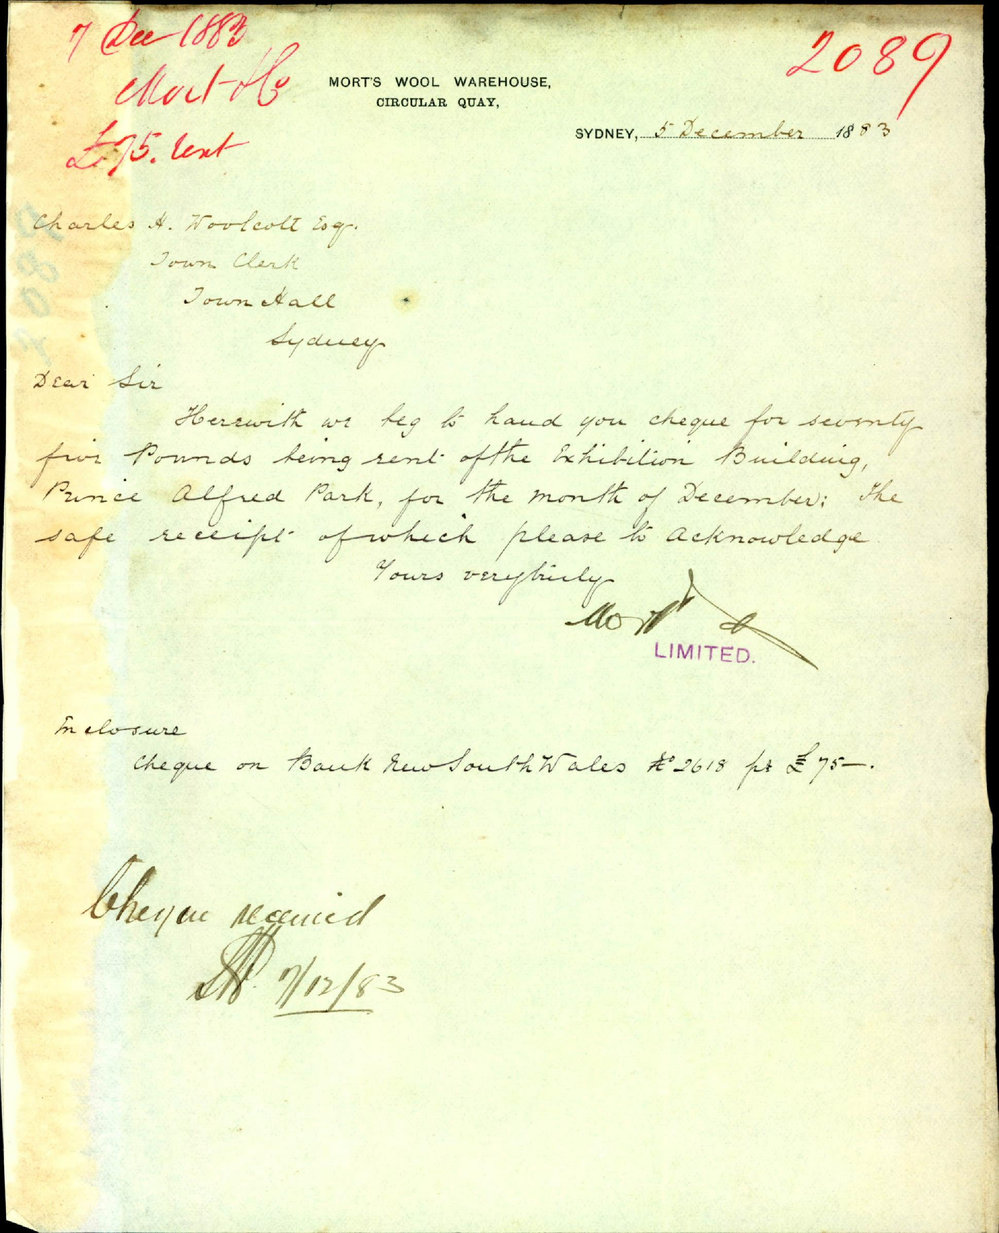 7 Dec 1883
Mort & Co
£75. rent
2089
MORT'S WOOL WAREHOUSE,
CIRCULAR QUAY,
SYDNEY, 5 December 1883
Charles H. Woolcott Esq.
Town Clerk
Town Hall
Sydney
Dear Sir
Herewith we beg to hand you cheque for seventy
five Pounds being rent of the Exhibition Building,
Prince Alfred Park, for the month of December; The
safe receipt of which please to acknowledge
Yours very truly
Mort & Co
LIMITED.
Enclosure
Cheque on Bank New South Wales No 2618 pr £75—.
Cheque received
7/12/83